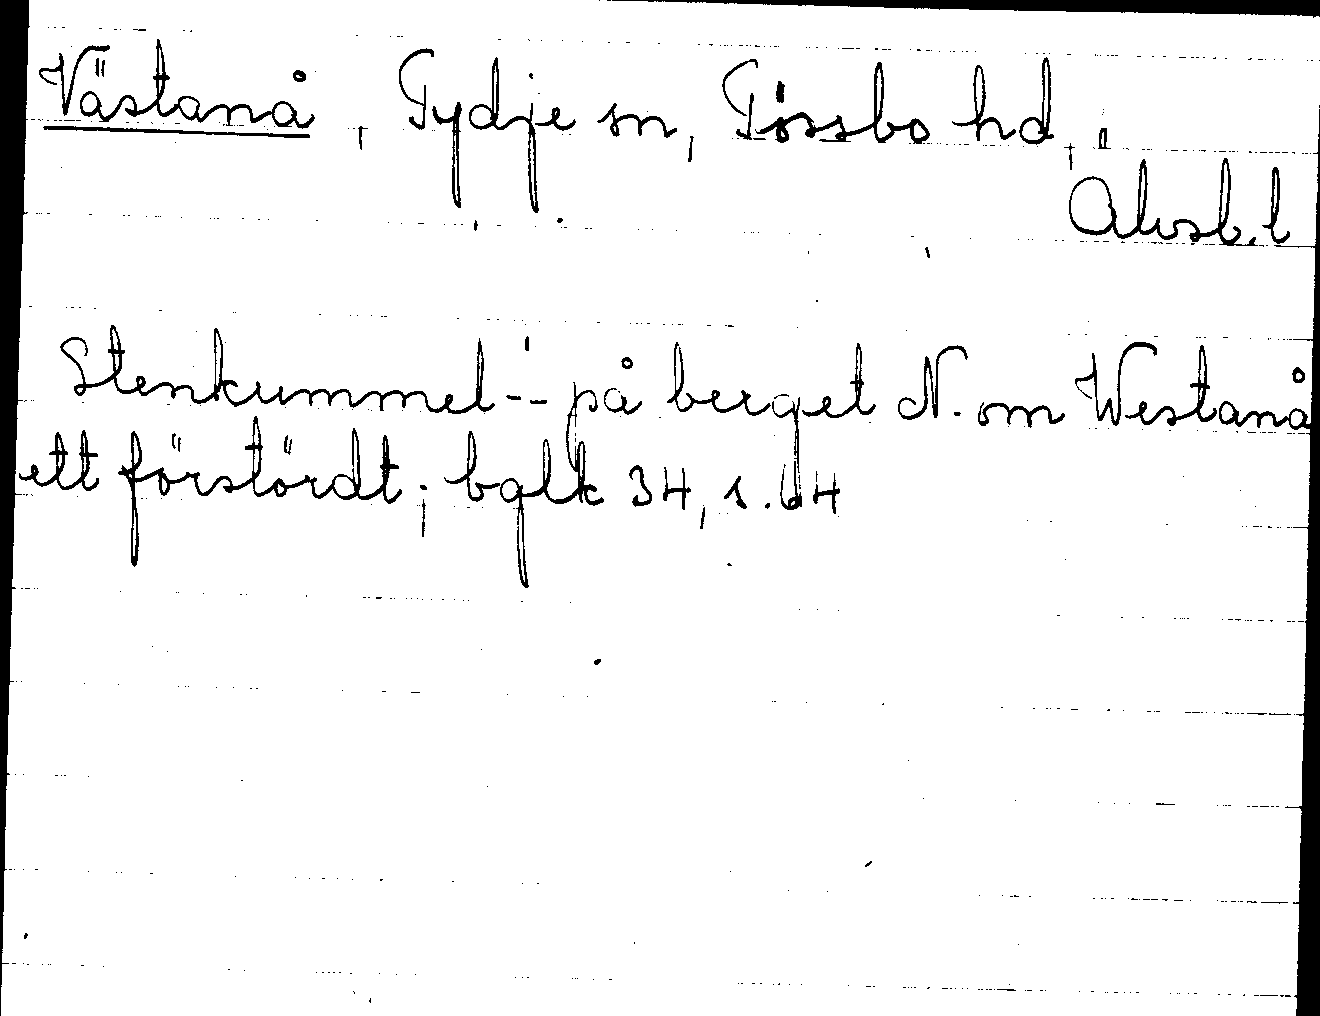 Västanå, Tydje sn, Tössbo hd,
Älvsb.l
Stenkummel -- på berget N. om Westanå
ett förstördt; bglk 34, s. 64